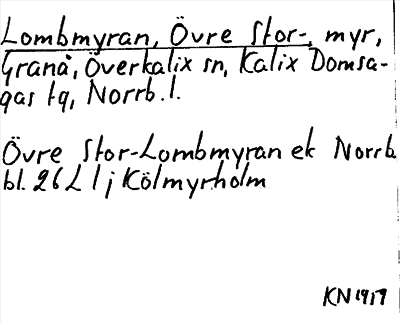 Lombmyran, Övre Stor-, myr,
Granå, Överkalix sn, Kalix Domsa-
gas tg, Norrb. l.
Övre Stor-Lombmyran ek Norrb
bl. 26 L l j Kölmyrholm
KN 1917